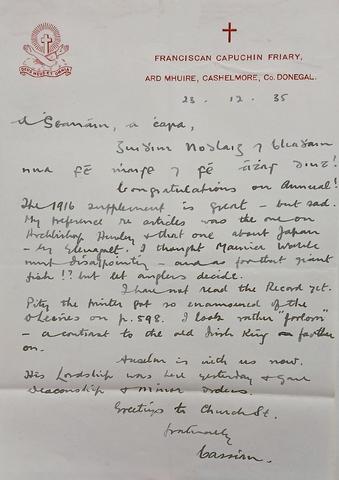 FRANCISCAN CAPUCHIN FRIARY,
ARD MHUIRE, CASHELMORE, Co. DONEGAL.
23 . 12 . 35
A Seanáin, a ċara,
Nodlaig ⁊
nua fé ⁊ fé
Congratulations on Annual!
The 1916 supplement is great – but sad.
My preference re articles was the one on
Archbishop & that one about Japan
– by . I thought Maurice
most disappointing – and as for that giant
fish!! but let anglers decide.
I have not read the Record yet.
Pity the printer got so enamoured of the
on p. 598. I look rather "forlorn"
– a contrast to the old Irish King – further
on.
Anselm is with us now.
His Lordship was here yesterday & gave
Deaconship & minor orders.
Greetings to Church St.
fraternally
Cassian.